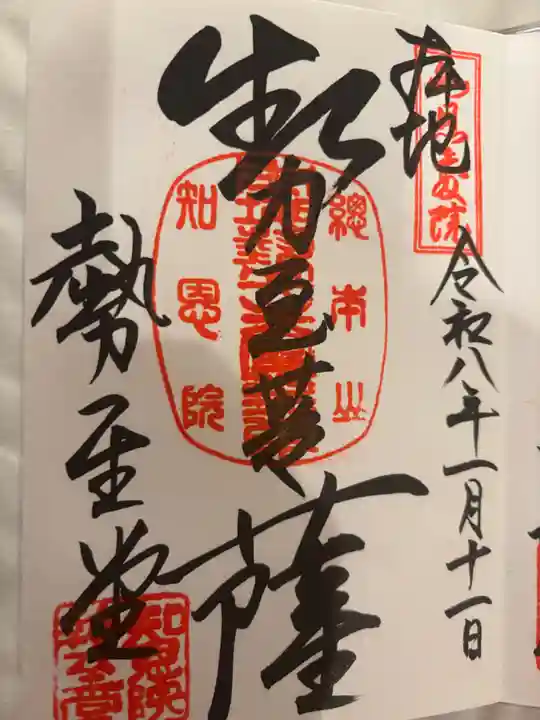 本地
令和八年一月十一日
勢至菩薩
總本山
知恩院
勢至堂